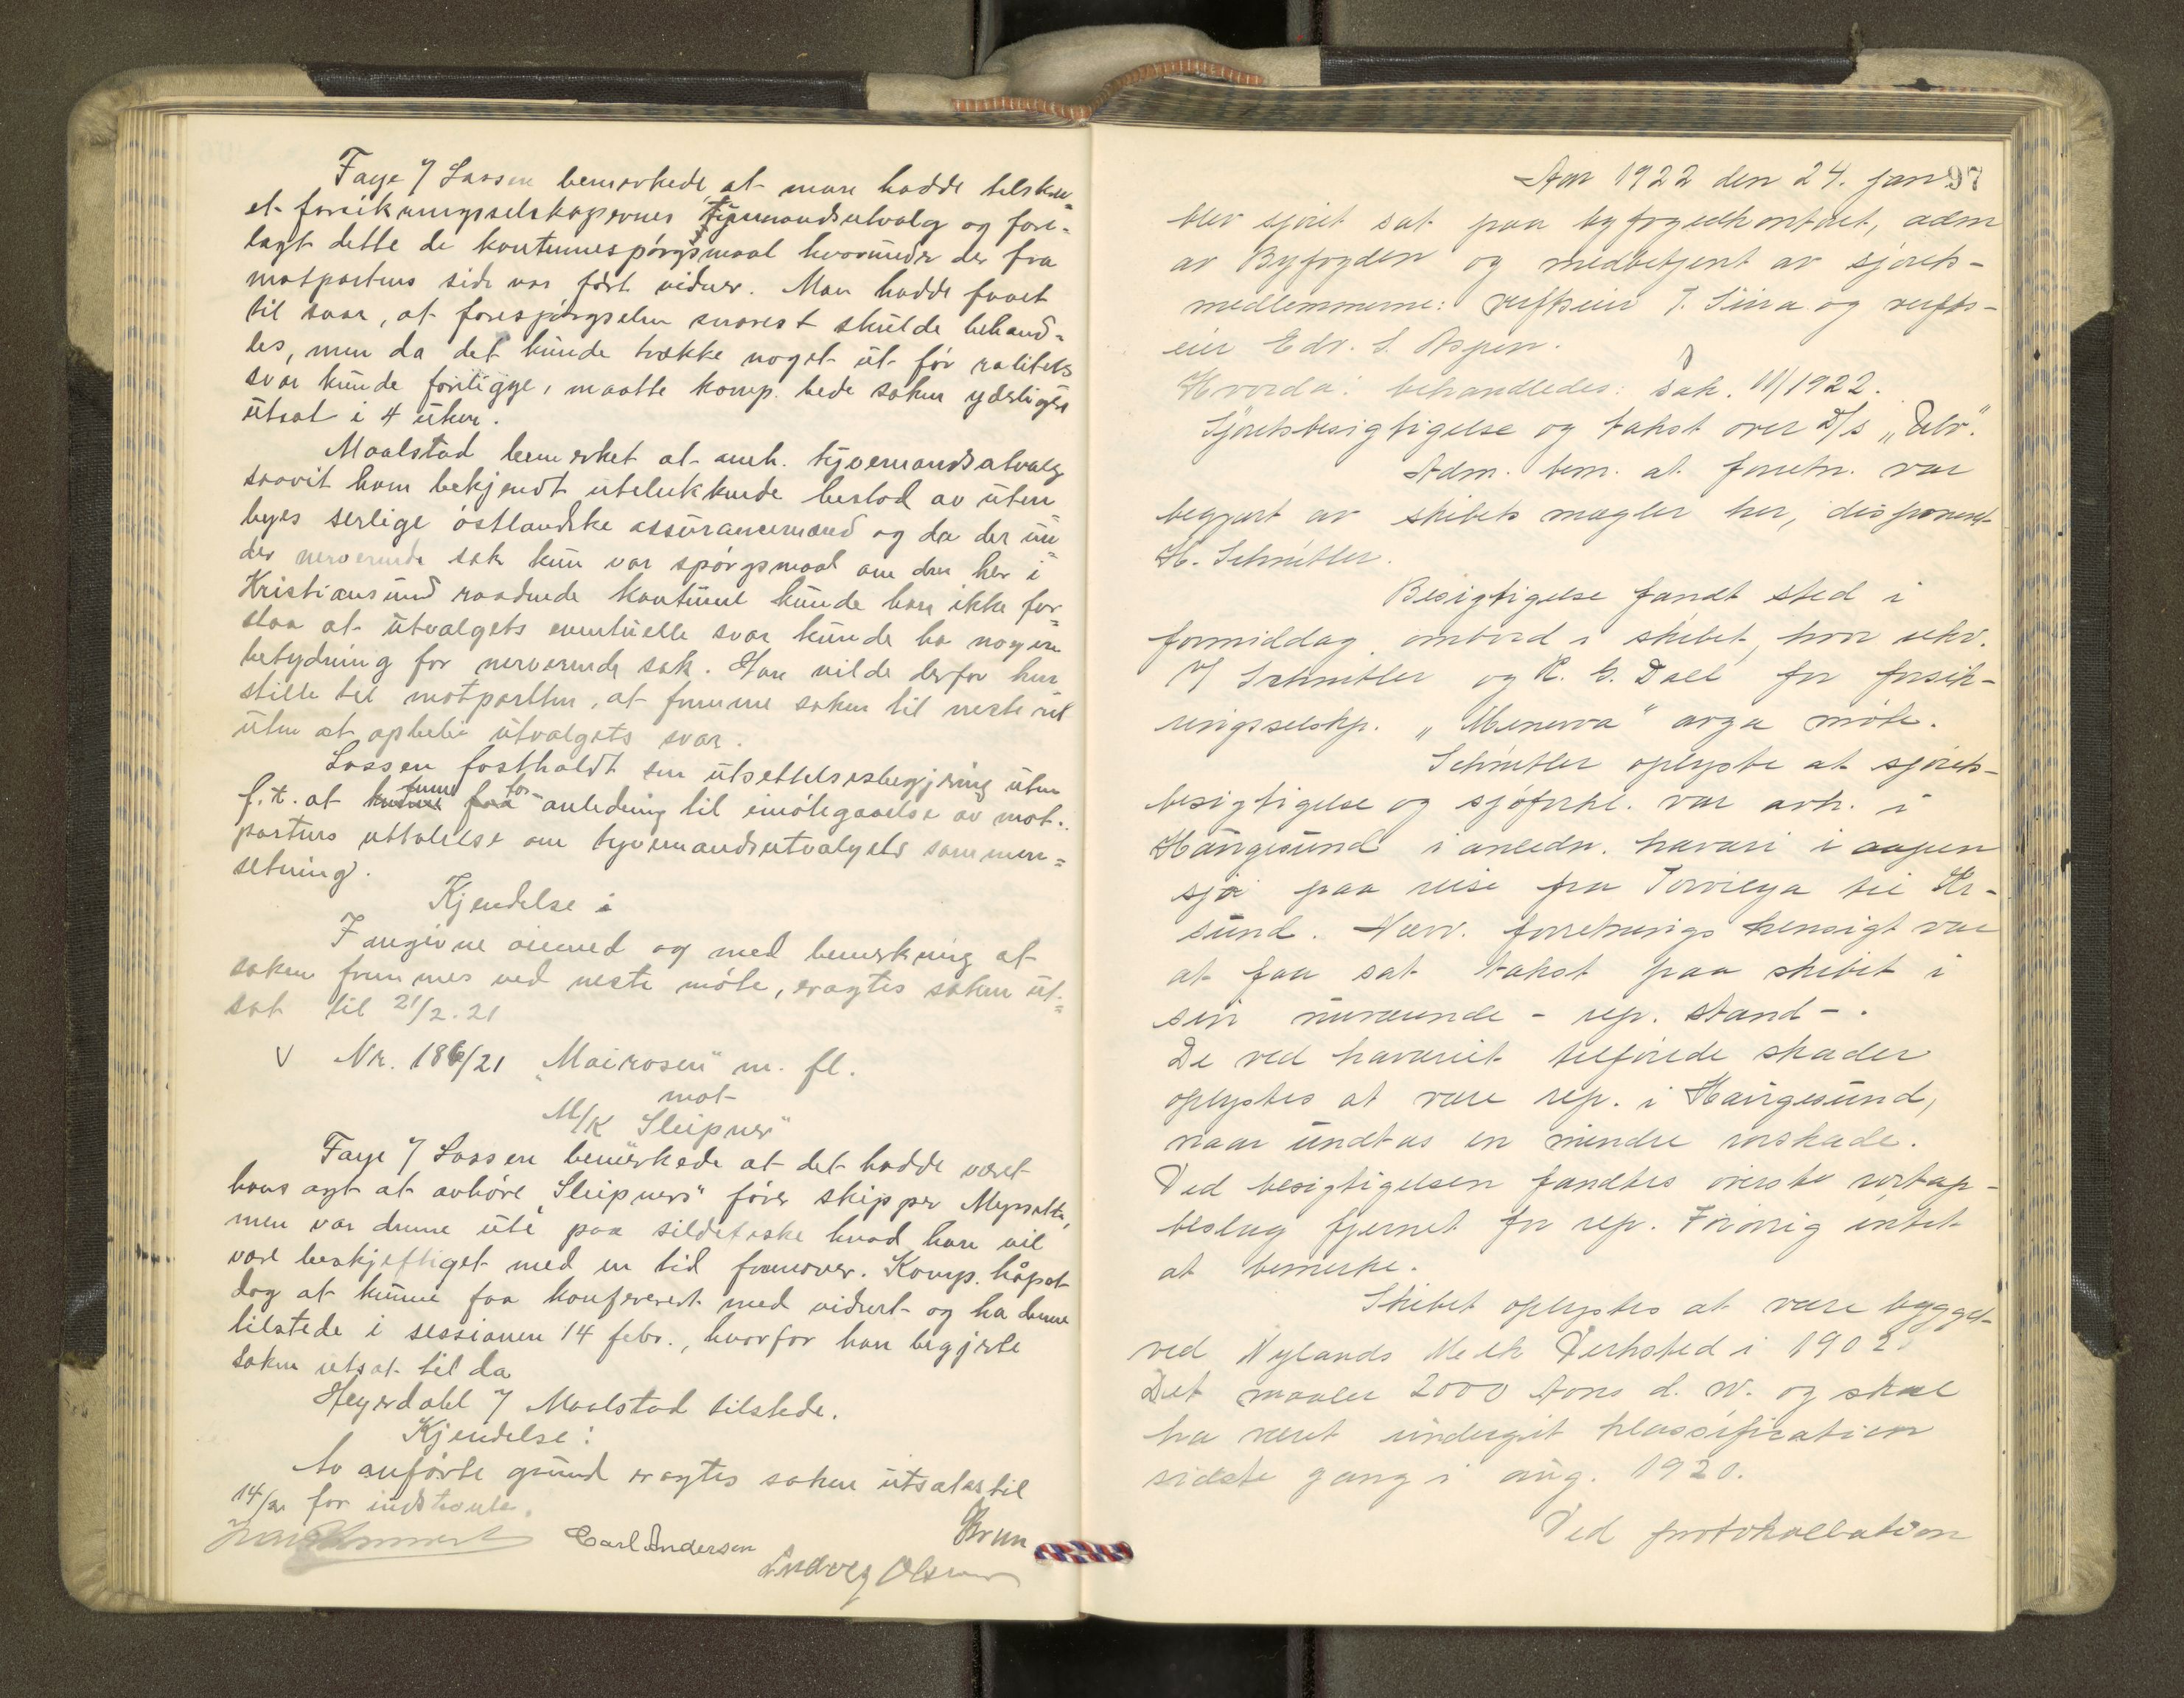 Faye f/ Lassen bemerkede at man hadde tilskrev=
et forsikringsselskapernes tjuemandsutvalg og fore=
lagt dette de kontumespørgsmaal hvorunder der fra
motpartens side var ført vidner. Man hadde faaet
til svar, at forespørgselen snarest skulde behand=
les, men da det kunde trække noget ut før realitets
svar kunde foreligge, maatte komp. bede saken yderligere
utsat i 4 uker.
Maalstad bemerket at anh. tyvemandsutvalg
saavit ham bekjendt utelukkende bestod av uten
byes serlige østlandske assurancemænd og da der un=
der nerverende sak kun var spørgsmaal om den her i
Kristiansund raadende kontume kunde han ikke for=
staa at utvalgets eventuelle svar kunde ha nogen
betydning for nerverende sak. Han vilde derfor hen
stille til motparten, at fremme saken til neste ret
uten at opbebie utvalgets svar.
Lassen fastholdt sin utsettelsesbegjæring uten
f. t. at finne for anledning til imøtegaaelse av mot=
partens uttalelse om tyvemandsutvalgets sammen=
setning.
Kjendelse:
I angivne øiemed og med bemerkning at
saken fremmes ved neste møte, eragtes saken ut=
sat til 21/2. 21
V Nr. 186/21 "Mairosen" m. fl.
mot
M/K "Sleipner"
Faye f/ Lassen bemerkede at det hadde været
hans agt at avhøre "Sleipners" fører skipper
men var denne ute paa sildefiske hvad han vil
være beskjeftiget med en tid fremover. Komp. håpet
dog at kunne faa konfereret med vidnet og ha denne
tilstede i sessionen 14 febr., hvorfor han begjerte
saken utsat til da
Heyerdahl f/ Maalstad tilstede.
Kjendelse:
Av anførte grund eragtes saken utsat til
14/2 for indstevnte.
Brun
Carl Andersen
Ludvig Olsen
Aar 1922 den 24. jan 97
blev sjøret sat paa byfogedkontoret, adm
av Byfogden og medbetjent av sjørets-
medlemmerne: verftseier J. Sina og verfts-
eier Edv. S. Aspen.
Hvorda: behandledes: sak. 11/1922.
Sjøretsbesigtigelse og takst over D/s "Delv".
Adm. bem. at forretn. var
begjært av skibets mægler her, disponent
H. Schnitler.
Besigtigelse fandt sted i
formiddag ombord i skibet, hvor sekr.
f/ Schnitler og R. G. Dall for forsik-
ringsselskp. "Menerva" avga møte.
Schnitler oplyste at sjørets-
besigtigelse og sjøforkl. var avh. i
Haugesund i anledn. havari i aapen
sjø paa reise fra Torrieya til Kr-
sund. Nærv. forretnings hensigt var
at faa sat takst paa skibet i
sin nuværende - rep. stand -.
De ved havariet tilførede skader
oplystes at være rep. i Haugesund,
naar undtas en mindre rorskade.
Ved besigtigelsen fandtes øverste rortap-
beslag fjernet for rep. Forøvrig intet
at bemerke.
Skibet oplystes at være bygget
ved Nylands Mek Verksted i 1902.
Det maaler 2000 tons d. W. og skal
ha været undergit klassification
sidste gang i aug. 1920.
Ved protokollation